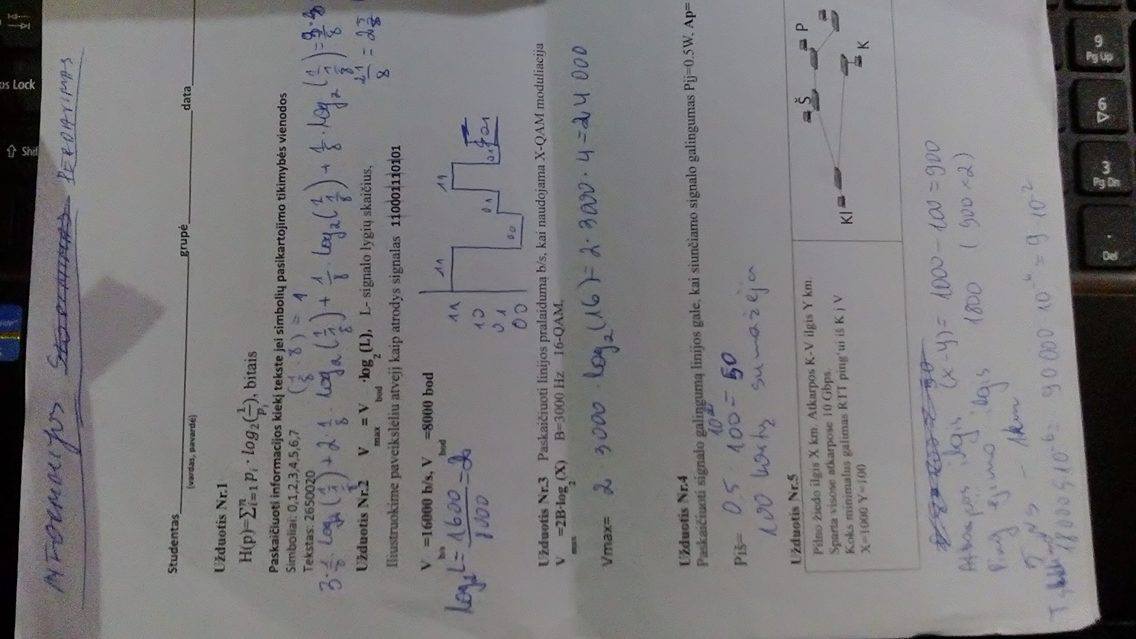 INFORMACIJOS PERDAVIMAS
Studentas grupė data
(vardas, pavardė)
Užduotis Nr.1
H(p)=∑ⁿᵢ₌₁ pᵢ · log₂(1/pᵢ), bitais
Paskaičiuoti informacijos kiekį tekste jei simbolių pasikartojimo tikimybės vienodos
Simboliai: 0,1,2,3,4,5,6,7 (1/8 · 8) = 1
Tekstas: 2650020
3·1/8 · log₂(1/1/8) + 2·1/8 · log₂(1/1/8) + 1/8 · log₂(1/1/8) + 1/8 · log₂(1/1/8) =
21/8 = 2 5/8
Užduotis Nr.2 V max = V bod ·log₂(L), L- signalo lygių skaičius,
Iliustruokime paveikslėliu atvejį kaip atrodys signalas 110001110101
V b/s =16000 b/s, V bod =8000 bod
log₂L = 1600/1000 = 2
11 11 11
10
01 01 01 01
00 00
Užduotis Nr.3 Paskaičiuoti linijos pralaidumą b/s, kai naudojama X-QAM moduliacija
V max =2B·log₂(X) B=3000 Hz 16-QAM,
Vmax= 2 · 3000 · log₂(16) = 2·3000·4 = 24 000
Užduotis Nr.4
Paskaičiuoti signalo galingumą linijos gale, kai siunčiamo signalo galingumas Pij=0.5W, Ap=
Piš= 0.5 · 100 = 50
100 kartų sumažėja
Užduotis Nr.5
Pilno žiedo ilgis X km. Atkarpos K-V ilgis Y km.
Sparta visose atkarpose 10 Gbps.
Koks minimalus galimas RTT ping'ui iš K į V
X=1000 Y=100
Š P
KI
K
Atkarpos ilgis (x-y) = 1000 - 100 = 900
Ping ėjimo ilgis 1800 (900×2)
5 µs - 1km
1800·5·10⁻⁶ = 90000·10⁻⁶ = 9·10⁻²